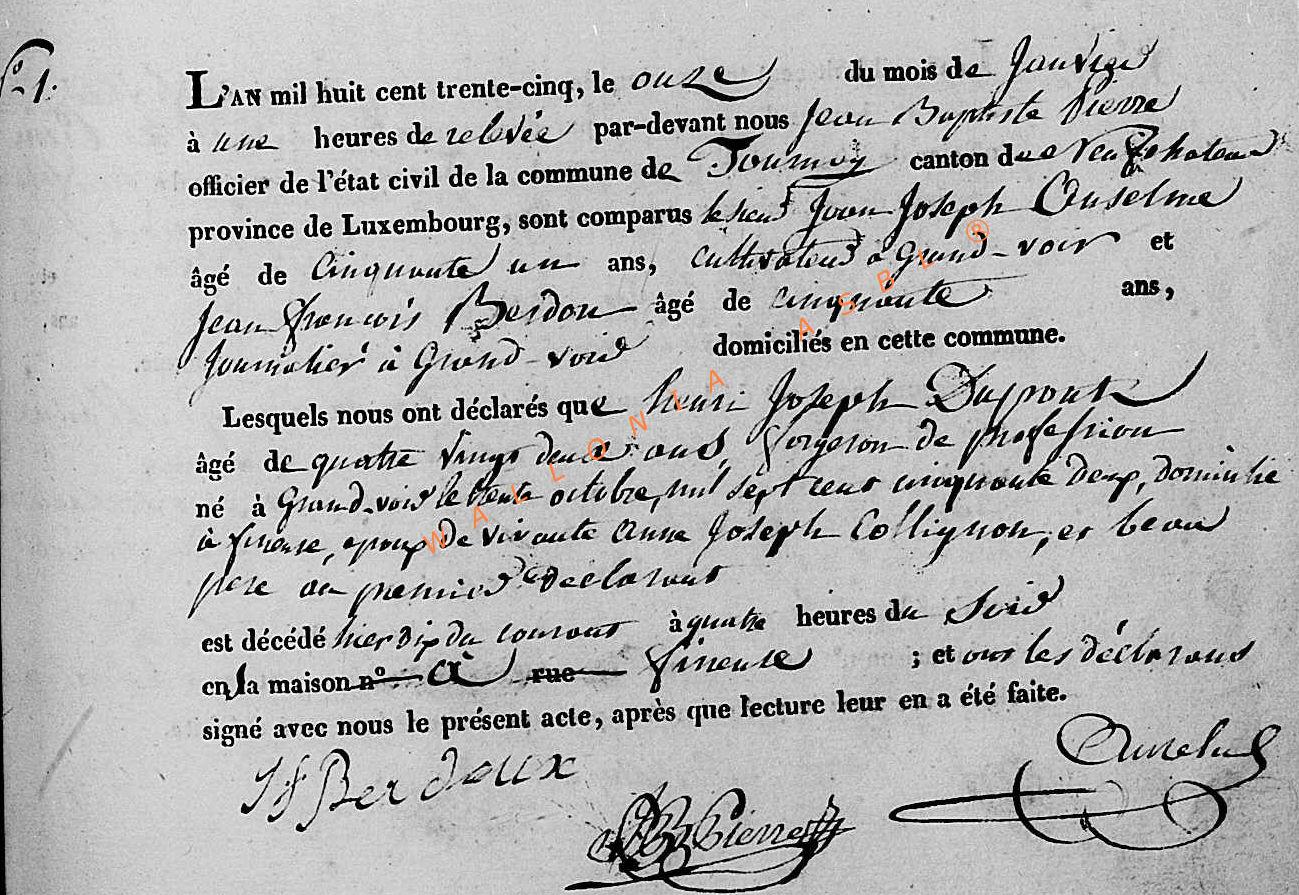 N° 1.
L'AN mil huit cent trente-cinq, le onze du mois de Janvier
à une heures de relevée par-devant nous Jean Baptiste Pierre
officier de l'état civil de la commune de Tournay canton de Neufchateau
province de Luxembourg, sont comparus le sieur Jean Joseph Anselme
âgé de Cinquante un ans, cultivateur à Grand-voir et
Jean François Berdou âgé de cinquante ans,
Journalier à Grand-voir domiciliés en cette commune.
Lesquels nous ont déclarés que henri Joseph Dupont
âgé de quatre vingt deux ans, forgeron de profession
né à Grand-voir le trente octobre, mil sept cent cinquante deux, domicilié
à fineuse, epoux de vivante Anne Joseph Collignon, et beau
pere au premier declarant
est décédé hier dix du courant à quatre heures du Soir
en la maison n° à rue fineuse ; et ont les déclarans
signé avec nous le présent acte, après que lecture leur en a été faite.
Jf Berdeux
JB Pierre
Anselme
WALLONIA ASBL ®